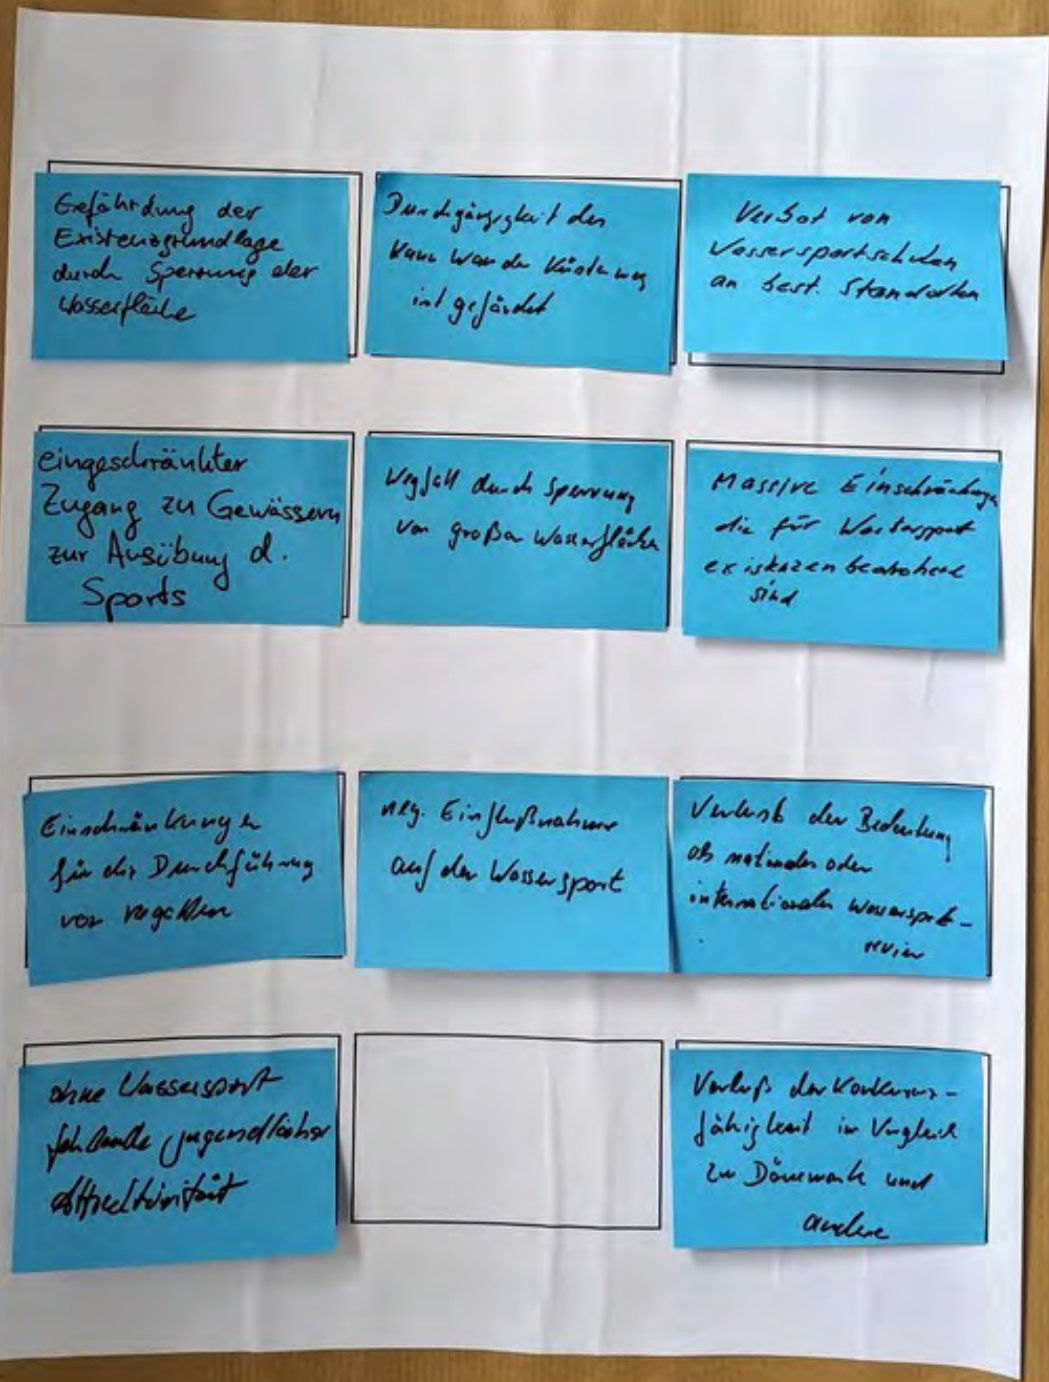 Gefährdung der
Existenzgrundlage
durch Sperrung der
Wasserfläche
Durchgängigkeit des
Kanu Wander Küstenweg
ist gefärdet
Verbot von
Wassersportschulen
an best. Standorten
eingeschränkter
Zugang zu Gewässern
zur Ausübung d.
Sports
Wegfall durch Sperrung
von großen Wasserflächen
Massive Einschränkungen
die für Wassersport
existenzenbedrohend
sind
Einschränkungen
für die Durchführung
von Regatten
neg. Einflußnahme
auf den Wassersport
Verlust der Bedeutung
als nationales oder
internationales Wassersport-
revier
ohne Wassersport
fehlende jugendlicher
Attraktivität
Verlust der Konkurrenz-
fähigkeit im Vergleich
zu Dänemark und
andere